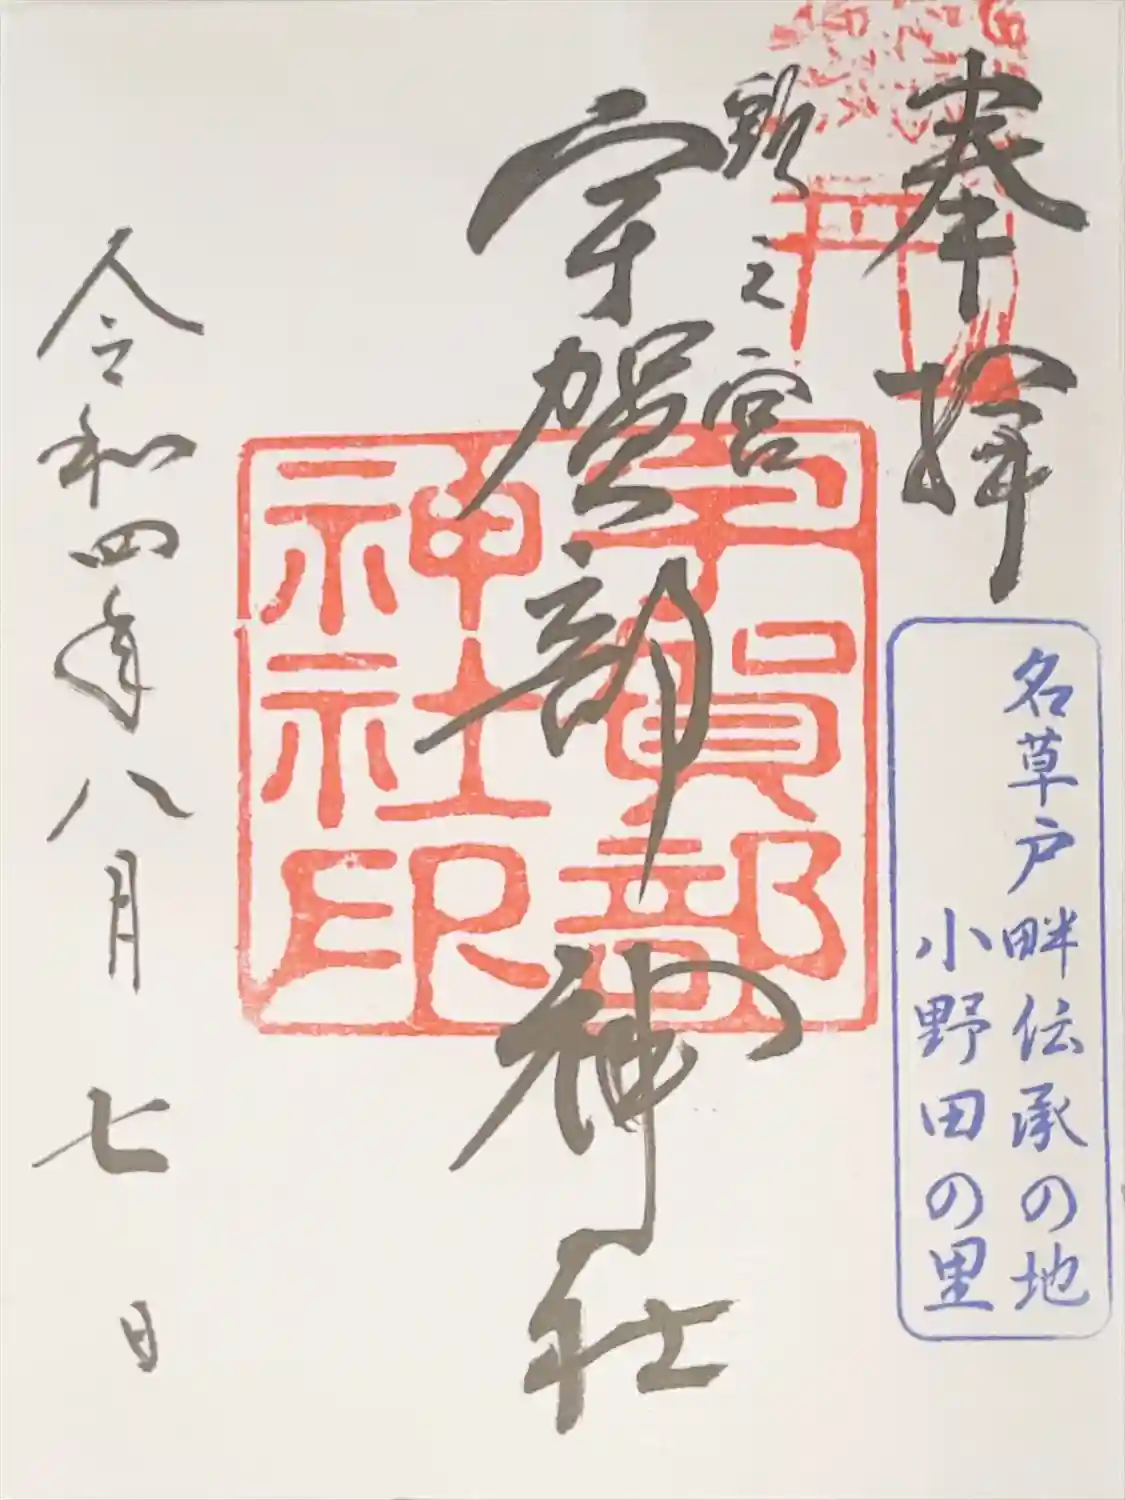 奉拝
名草戸畔伝承の地
小野田の里
頭之宮
宇賀部神社
宇賀部
神社印
令和四年八月七日